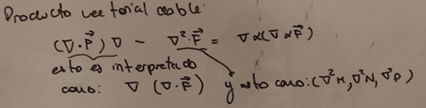 Producto vectorial doble:
(∇·F⃗)∇ - ∇²·F⃗ = ∇α(∇αF⃗)
esto es interpretado
como: ∇(∇·F⃗) y esto como: (∇²M, ∇²N, ∇²P)